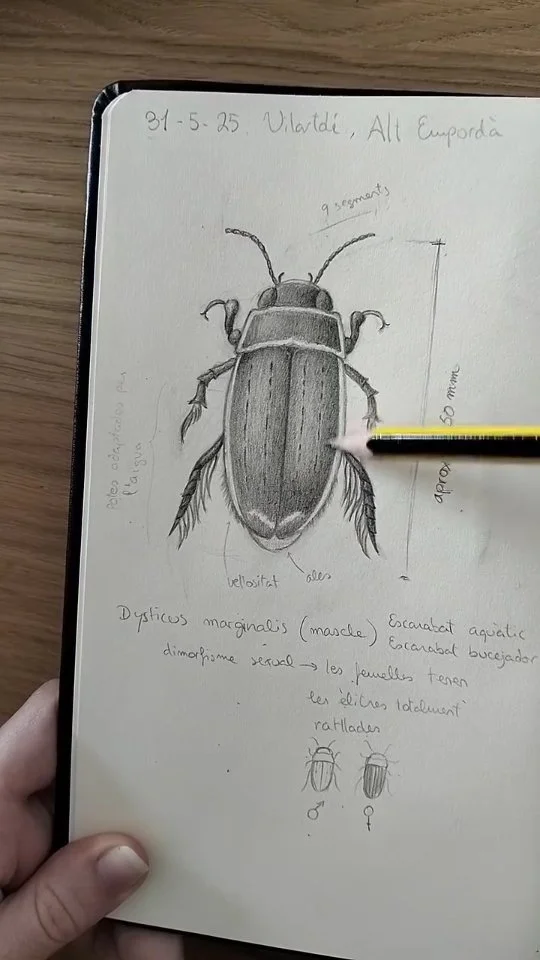 31-5-25 Vilartlí, Alt Empordà
9 segments
aprox 50 mm
Potes adaptades per
l'aigua
vellositat
ales
Dysticus marginalis (mascle)
Escarabat aquàtic
Escarabat bucejador
dimorfisme sexual → les femelles tenen
les èlitres totalment
ratllades
♂ ♀